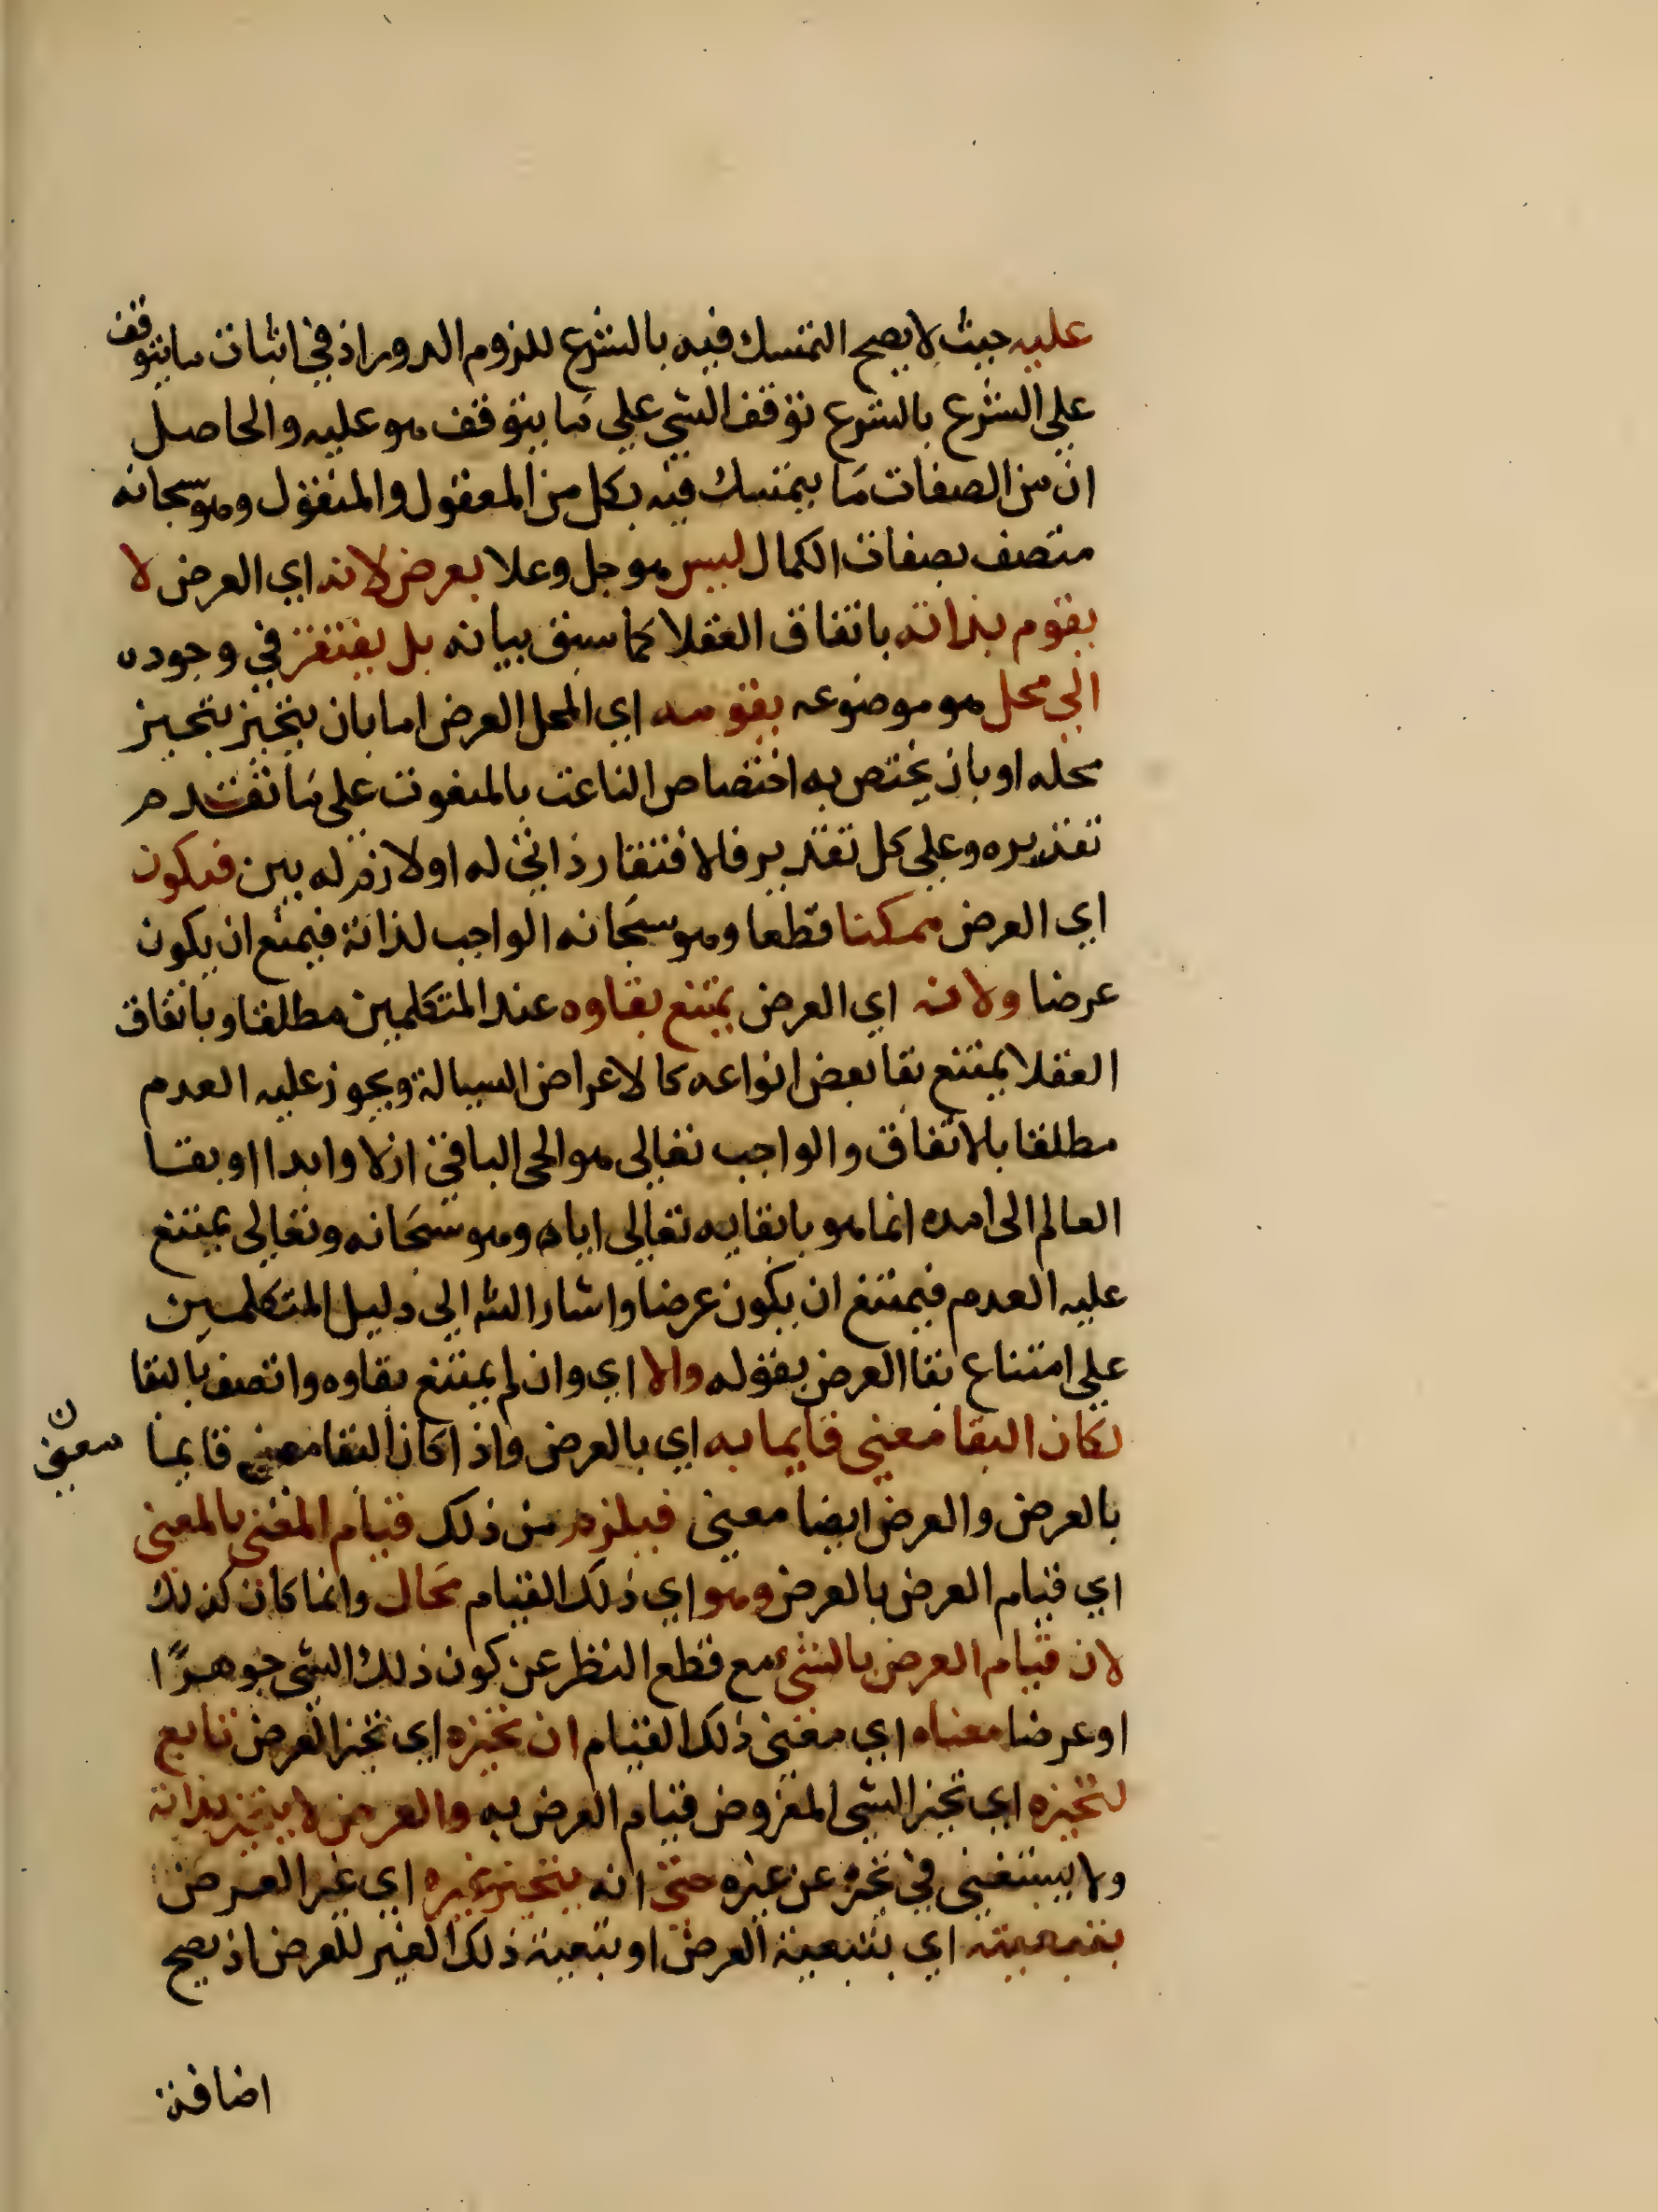 عليه حيث لا يصح التمسك فيه بالشرع للزوم الدور اذ في اثبات ما يتوقف
علي الشرع بالشرع توقف الشي علي ما يتوقف هو عليه والحاصل
ان من الصفات ما يتمسك فيه بكل من المعقول والمنقول وهو سبحانه
متصف بصفات الكمال ليس هو جل وعلا بعرض لانه اي العرض لا
يقوم بذاته باتفاق العقلا كما سبق بيانه بل يفتقر في وجوده
الي محل هو موضوعه يقومه اي المحل العرض اما بان يتحيز بتحيز
محله او بان يختص به اختصاص الناعت بالمنعوت على ما تقدم
تقديره وعلي كل تقدير فالافتقار ذاتي له او لازم له بين فيكون
اي العرض ممكنا قطعا وهو سبحانه الواجب لذاته فيمتنع ان يكون
عرضا ولانه اي العرض يمتنع بقاوه عند المتكلمين مطلقا وباتفاق
العقلا يمتنع بقا بعض انواعه كالاعراض السيالة ويجوز عليه العدم
مطلقا بالاتفاق والواجب تعالى هو الحى الباقي ازلا وابدا او بقا
العالم الى امده انما هو بابقايه تعالى اياه وهو سبحانه وتعالى يمتنع
عليه العدم فيمتنع ان يكون عرضا واشار الش الى دليل المتكلمين
علي امتناع بقا العرض بقوله والا اي وان لم يمتنع بقاوه واتصف بالبقا
لكان البقا معنى قايما به اي بالعرض واذا كان البقا معنى قايما
معنى ن
بالعرض والعرض ايضا معنى فيلزم من ذلك قيام المعنى بالمعنى
اي قيام العرض بالعرض وهو اي ذلك القيام محال وانما كان كذلك
لان قيام العرض بالشيء مع قطع النظر عن كون ذلك الشي جوهرًا
او عرضا معناه اي معنى ذلك القيام ان تحيزه اي تحيز العرض تابع
لتحيزه اي تحيز الشي المفروض قيام العرض به والعرض لا يتحيز بذاته
ولا يستغني في تحيزه عن غيره حتى انه يتحيز غيره اي غير العرض
بتبعيته اي بتبعية العرض او بتبعية ذلك الغير للعرض اذ يصح
اضافة